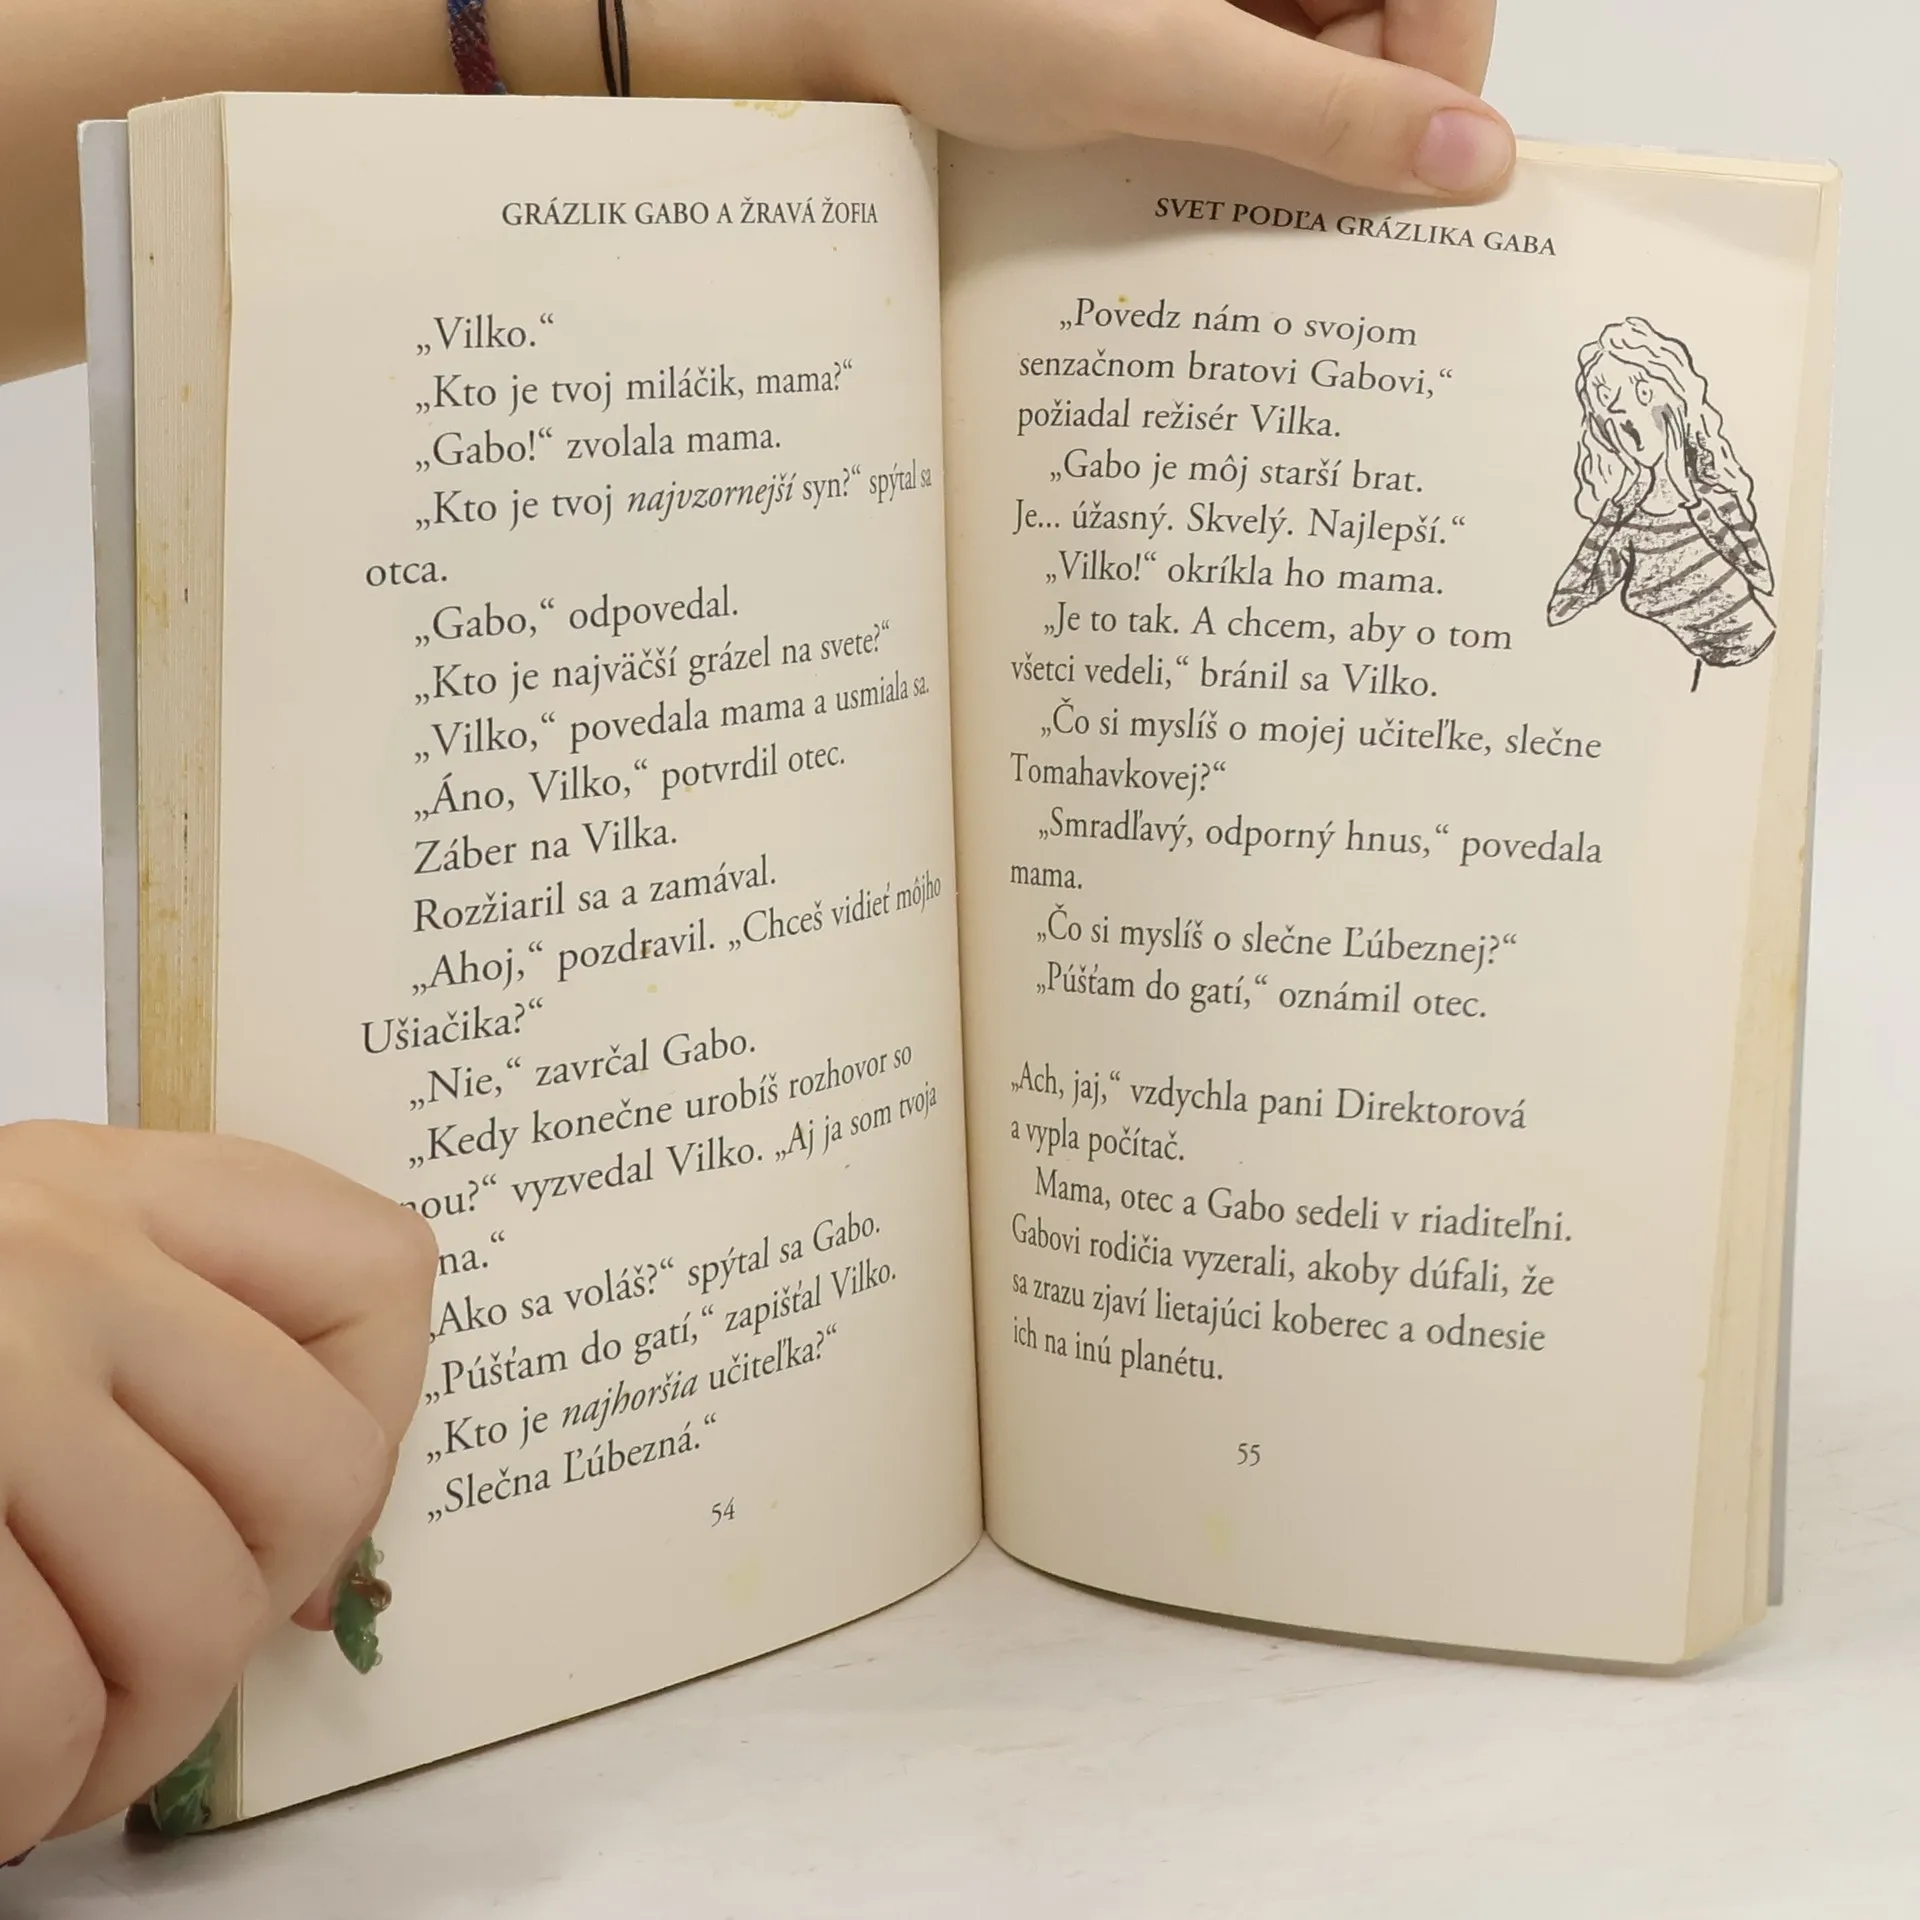 GRÁZLIK GABO A ŽRAVÁ ŽOFIA
„Vilko.“
„Kto je tvoj miláčik, mama?“
„Gabo!“ zvolala mama.
„Kto je tvoj najvzornejší syn?“ spýtal sa
otca.
„Gabo,“ odpovedal.
„Kto je najväčší grázel na svete?“
„Vilko,“ povedala mama a usmiala sa.
„Áno, Vilko,“ potvrdil otec.
Záber na Vilka.
Rozžiaril sa a zamával.
„Ahoj,“ pozdravil. „Chceš vidieť môjho
Ušiačika?“
„Nie,“ zavrčal Gabo.
„Kedy konečne urobíš rozhovor so
vyzvedal Vilko. „Aj ja som tvoja
„Ako sa voláš?“ spýtal sa Gabo.
„Púšťam do gatí,“ zapišťal Vilko.
„Kto je najhoršia učiteľka?“
„Slečna Ľúbezná.“
54
SVET PODĽA GRÁZLIKA GABA
„Povedz nám o svojom
senzačnom bratovi Gabovi,“
požiadal režisér Vilka.
„Gabo je môj starší brat.
Je... úžasný. Skvelý. Najlepší.“
„Vilko!“ okríkla ho mama.
„Je to tak. A chcem, aby o tom
všetci vedeli,“ bránil sa Vilko.
„Čo si myslíš o mojej učiteľke, slečne
Tomahavkovej?“
„Smradľavý, odporný hnus,“ povedala
mama.
„Čo si myslíš o slečne Ľúbeznej?“
„Púšťam do gatí,“ oznámil otec.
„Ach, jaj,“ vzdychla pani Direktorová
a vypla počítač.
Mama, otec a Gabo sedeli v riaditeľni.
Gabovi rodičia vyzerali, akoby dúfali, že
sa zrazu zjaví lietajúci koberec a odnesie
ich na inú planétu.
55